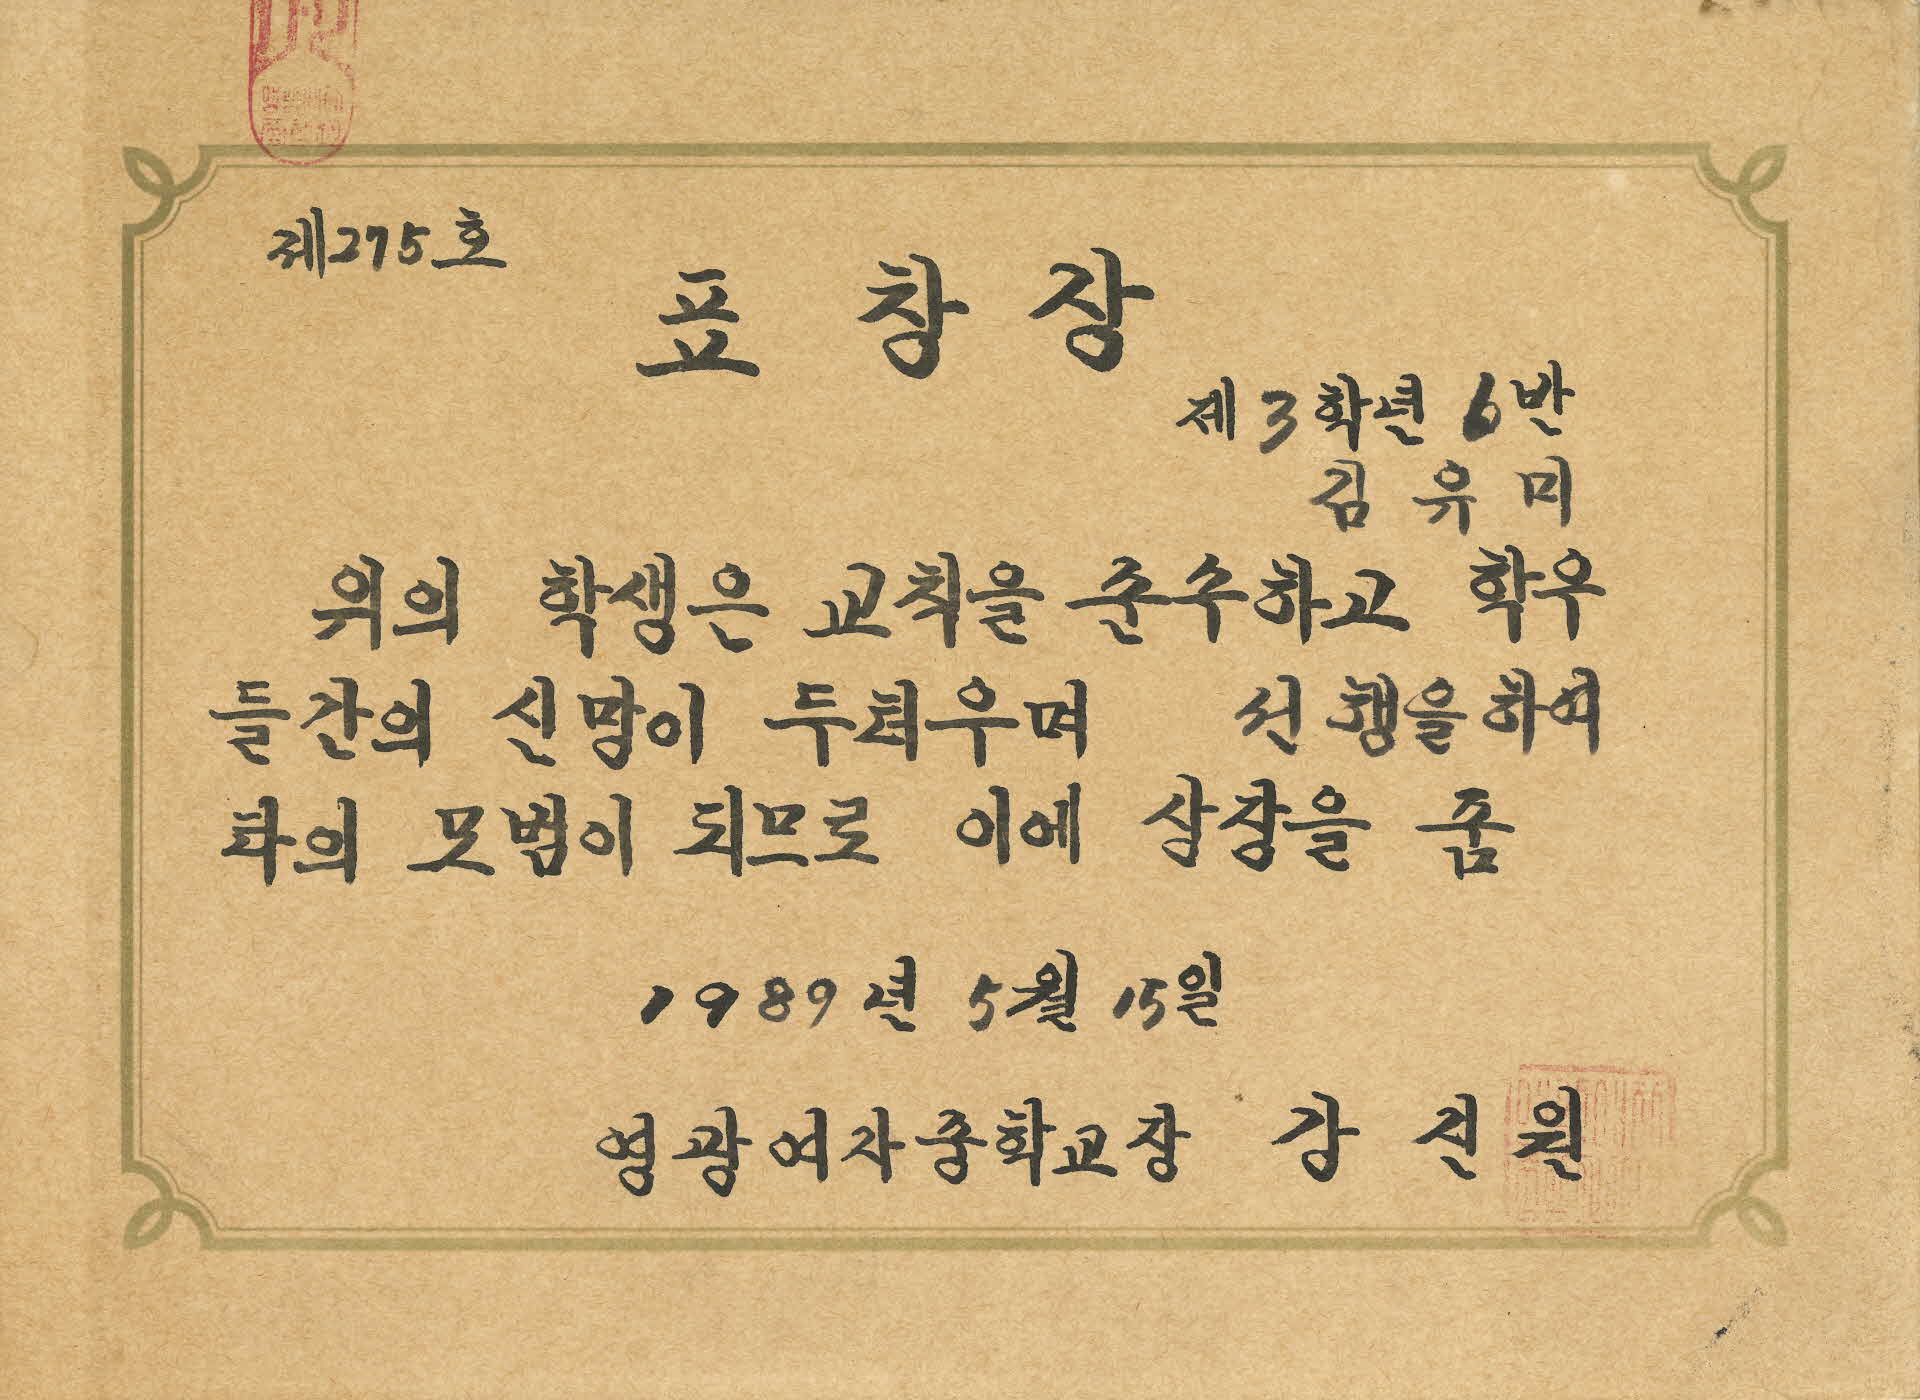 제275호
표 창 장
제 3 학년 6 반
김 유 미
위의 학생은 교칙을 준수하고 학우
들간의 신망이 두터우며 선행을하여
타의 모범이 되므로 이에 상장을 줌
1989년 5월 15일
영광여자중학교장 강 신 원